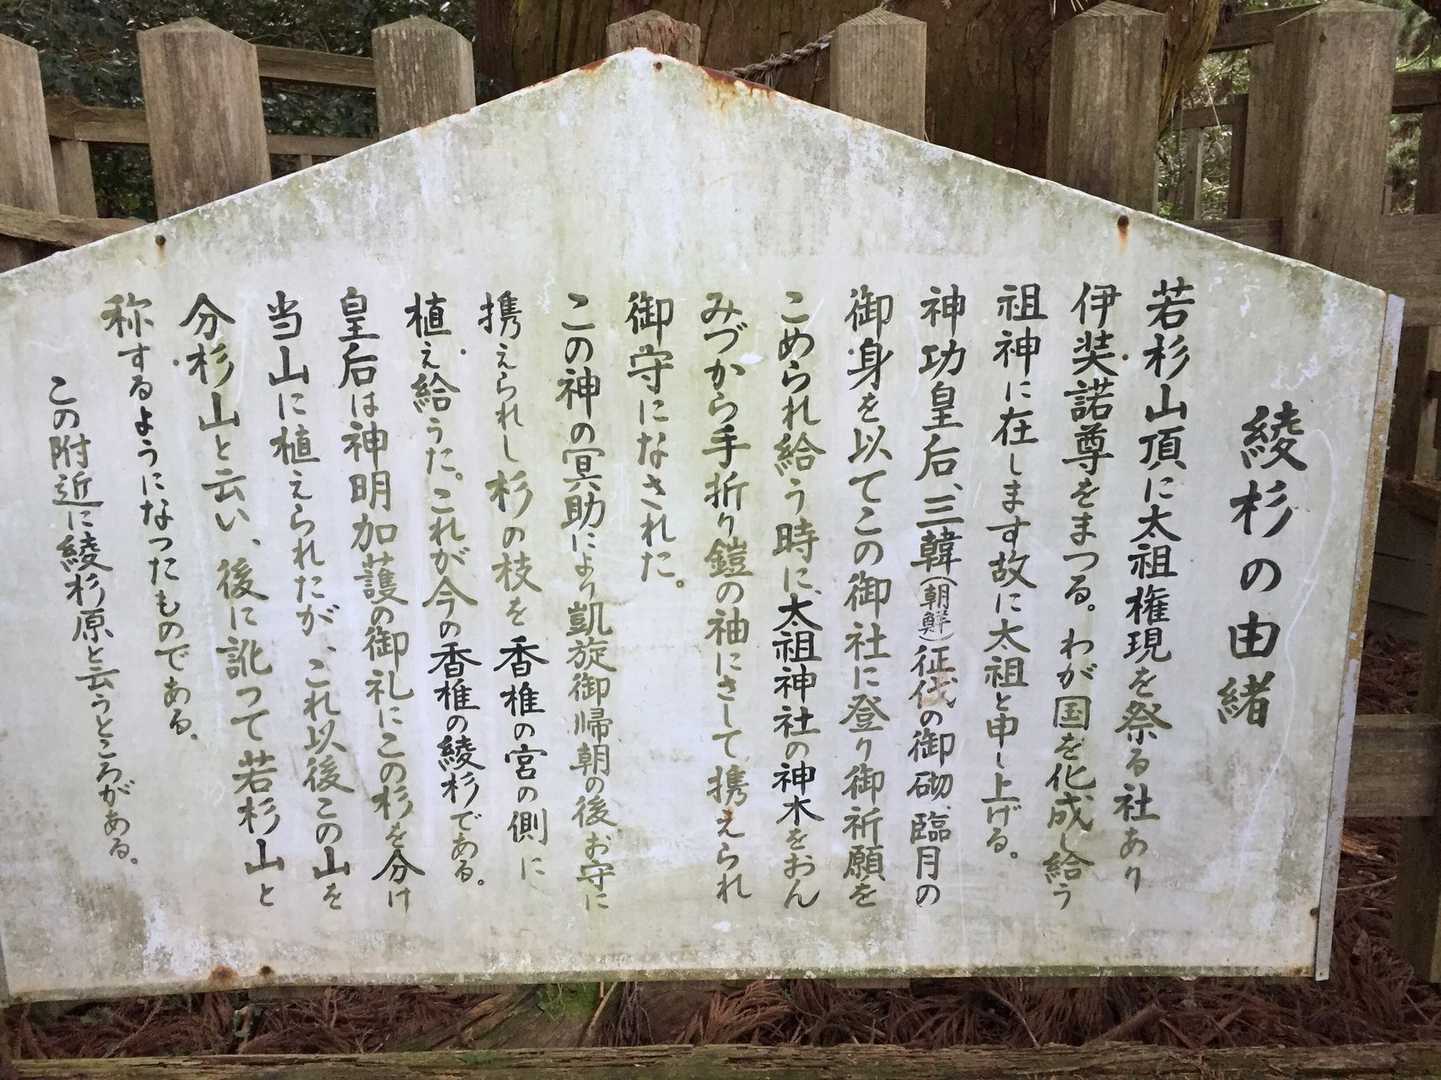 綾杉の由緒
若杉山頂に太祖権現を祭る社あり
伊弉諾尊をまつる。わが国を化成し給う
祖神に在します故に太祖と申し上げる。
神功皇后、三韓(朝鮮)征伐の御砌、臨月の
御身を以てこの御社に登り御祈願を
こめられ給う時に、太祖神社の神木をおん
みづから手折り鎧の袖にさして、携えられ
御守になされた。
この神の冥助により凱旋御帰朝の後お守に
携えられし杉の枝を香椎の宮の側に
植え給うた。これが今の香椎の綾杉である。
皇后は神明加護の御礼にこの杉を分け
当山に植えられたが、これ以後この山を
分杉山と云い、後に訛つて若杉山と
称するようになつたものである。
この附近に綾杉原と云うところがある。